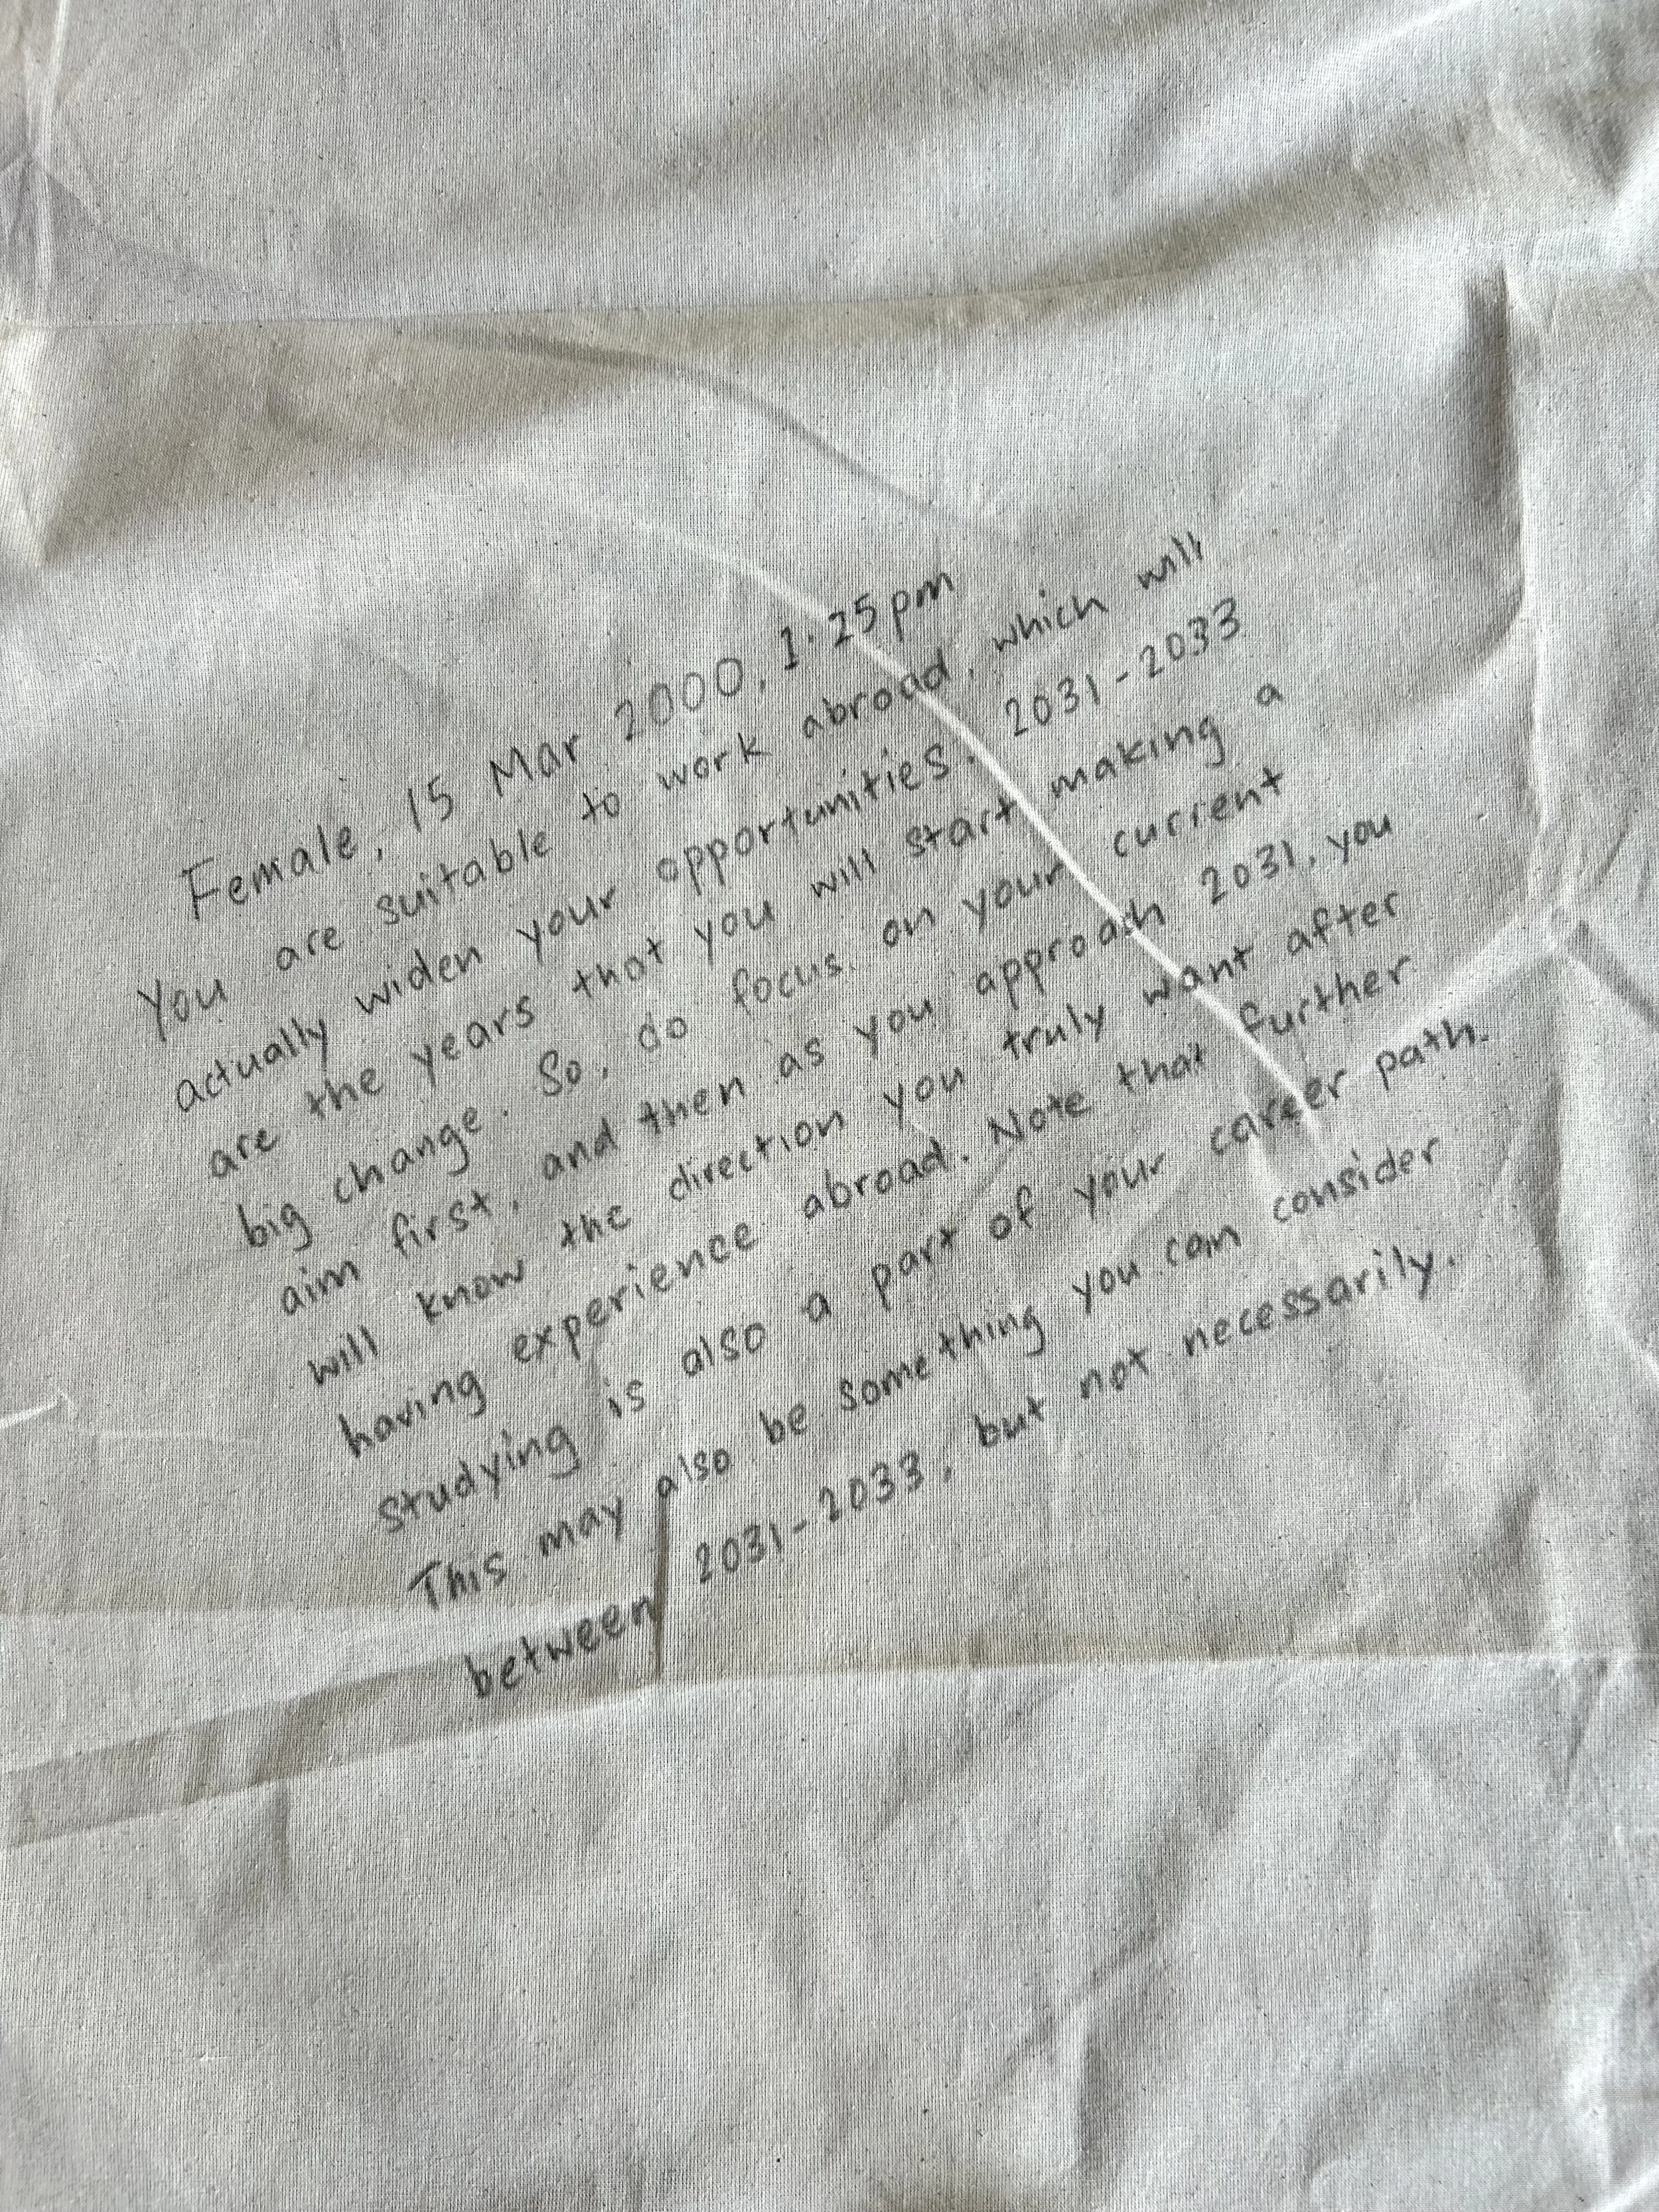 Female, 15 Mar 2000, 1.25pm
You are suitable to work abroad, which will
actually widen your opportunities. 2031-2033
are the years that you will start making a
big change. So, do focus on your current
aim first, and then as you approach 2031, you
will know the direction you truly want after
having experience abroad. Note that further
studying is also a part of your career path.
This may also be something you can consider
between 2031-2033, but not necessarily.